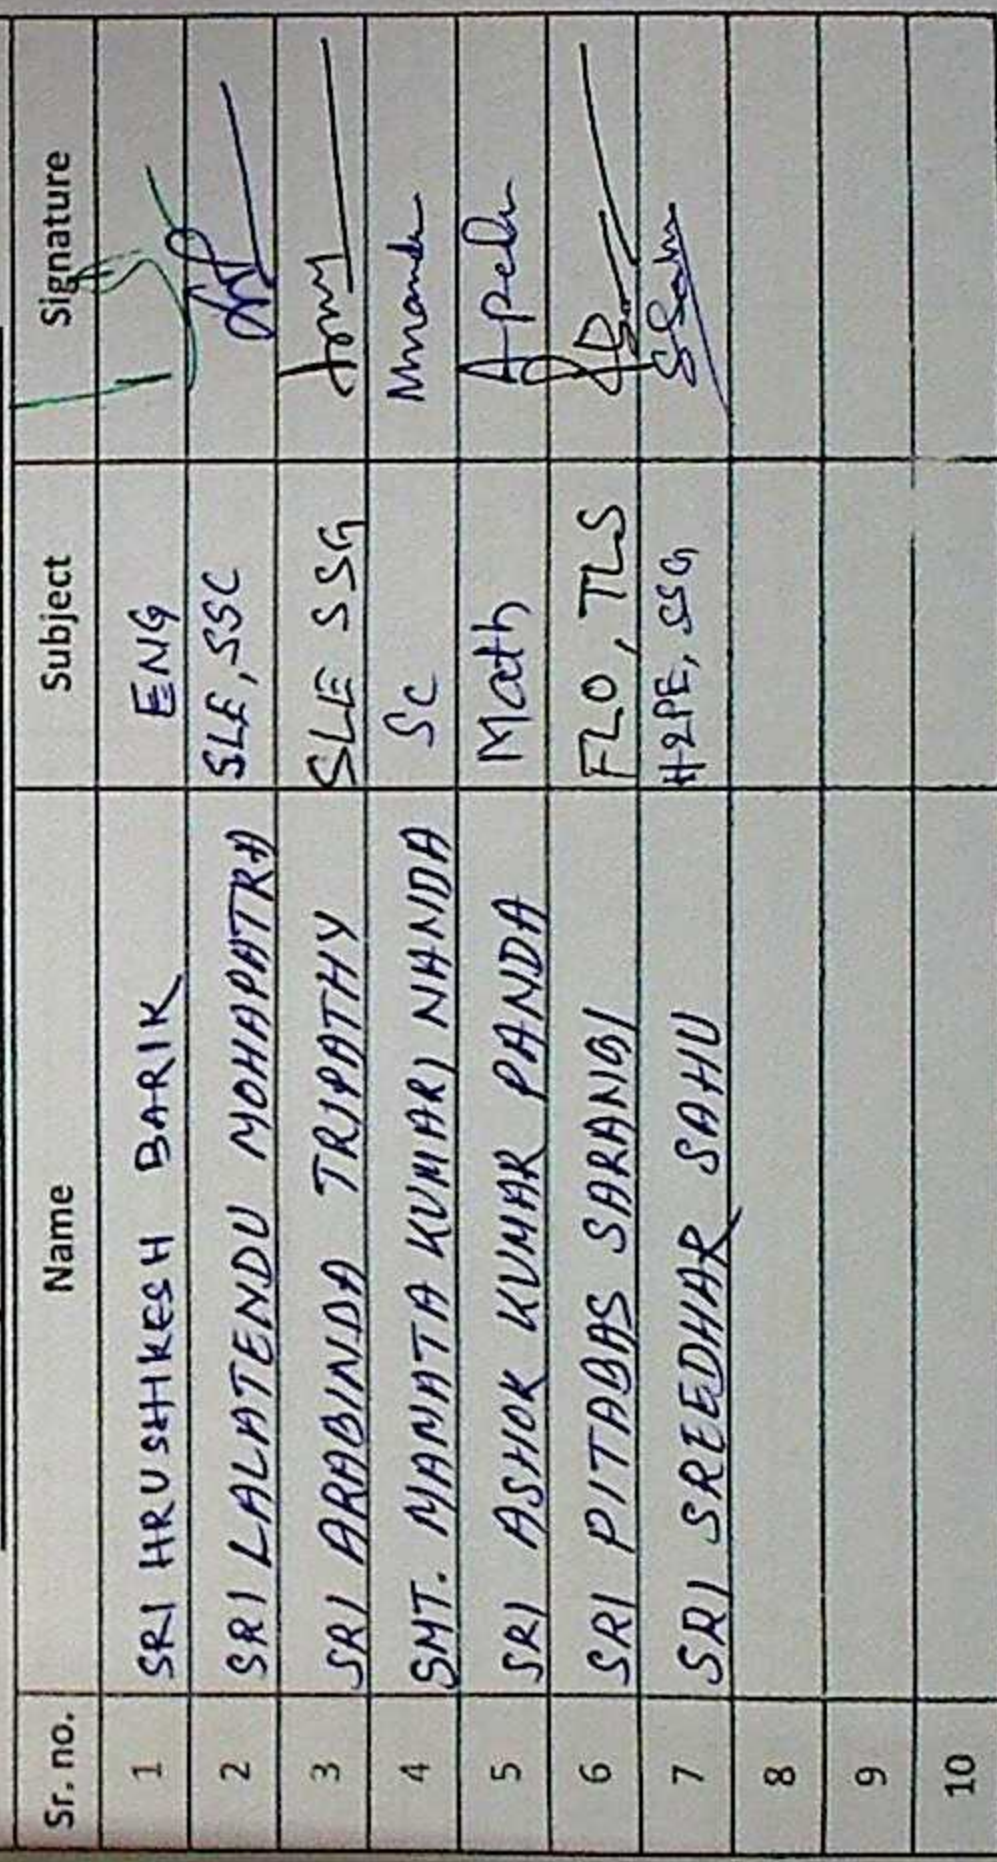 Sr. no. Name Subject Signature
1 SRI HRUSHIKESH BARIK ENG
2 SRI LALATENDU MOHAPATRA SLE, SSC
3 SRI ARABINDA TRIPATHY SLE SSG
4 SMT. MAMATA KUMARI NANDA SC
5 SRI ASHOK KUMAR PANDA Math
6 SRI PITABAS SARANGI FLO, TLS
7 SRI SREEDHAR SAHU H&PE, SSG SSahu
8
9
10